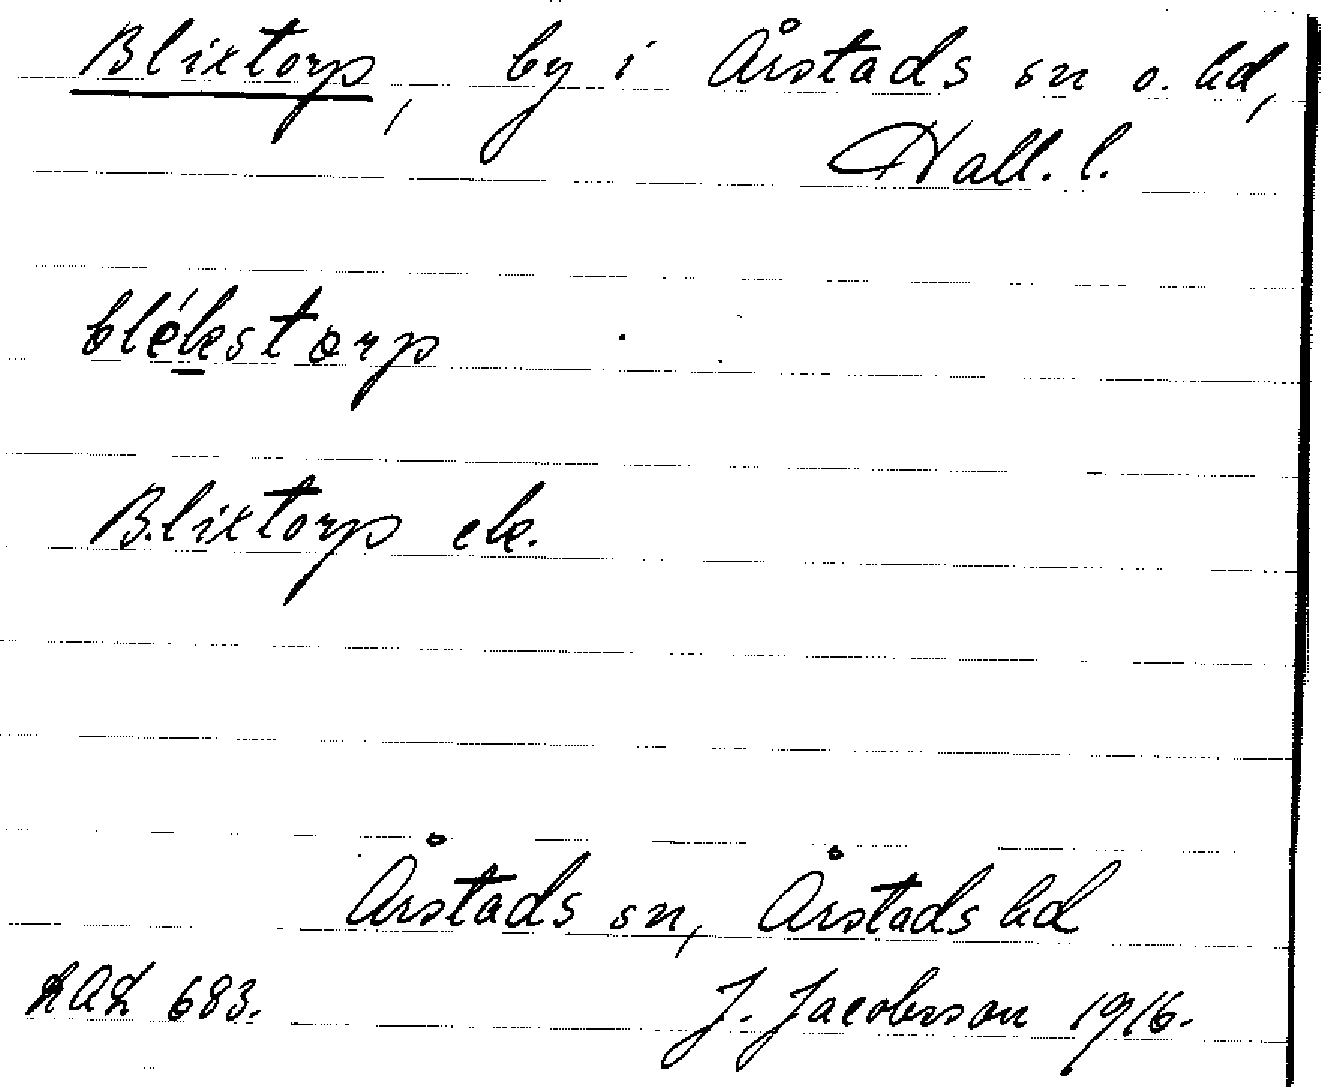 Blixtorp, by i Årstads sn o. hd,
Hall. l.
blékstorp
Blixtorp ek.
Årstads sn, Årstads hd
LAL 683.
J. Jacobsson 1916.